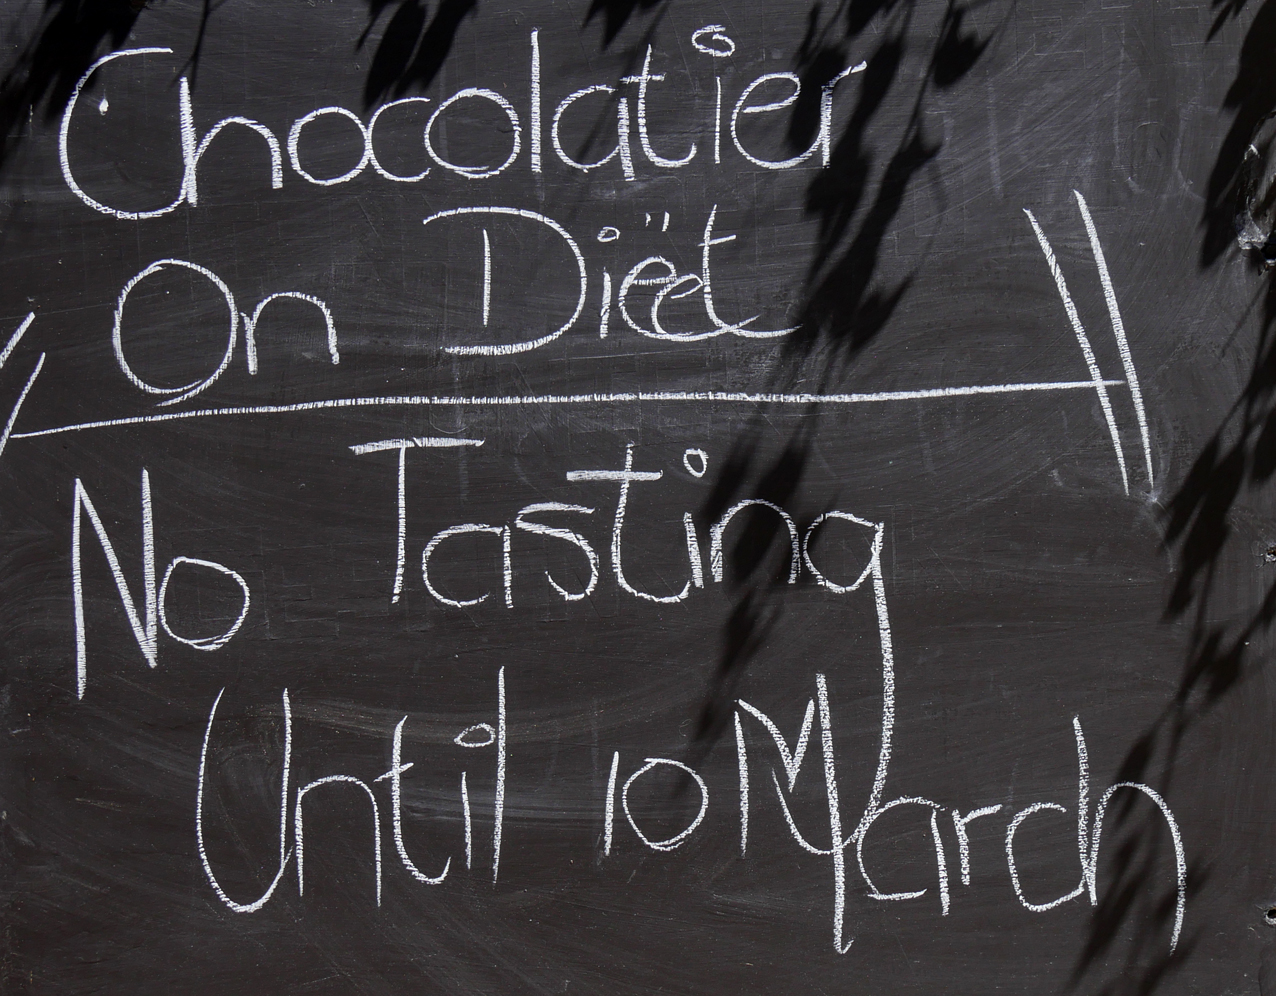 Chocolatier
On Diët
No Tasting
Until 10 March